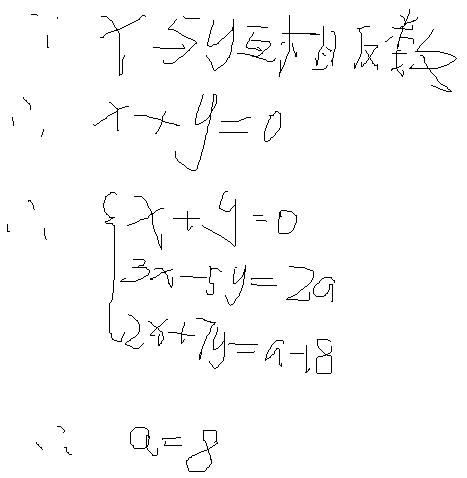 ∵ x与y互为相反数
∴ x+y=0
∴ { x+y=0
3x-5y=2a
2x+7y=a-18
∴ a=8